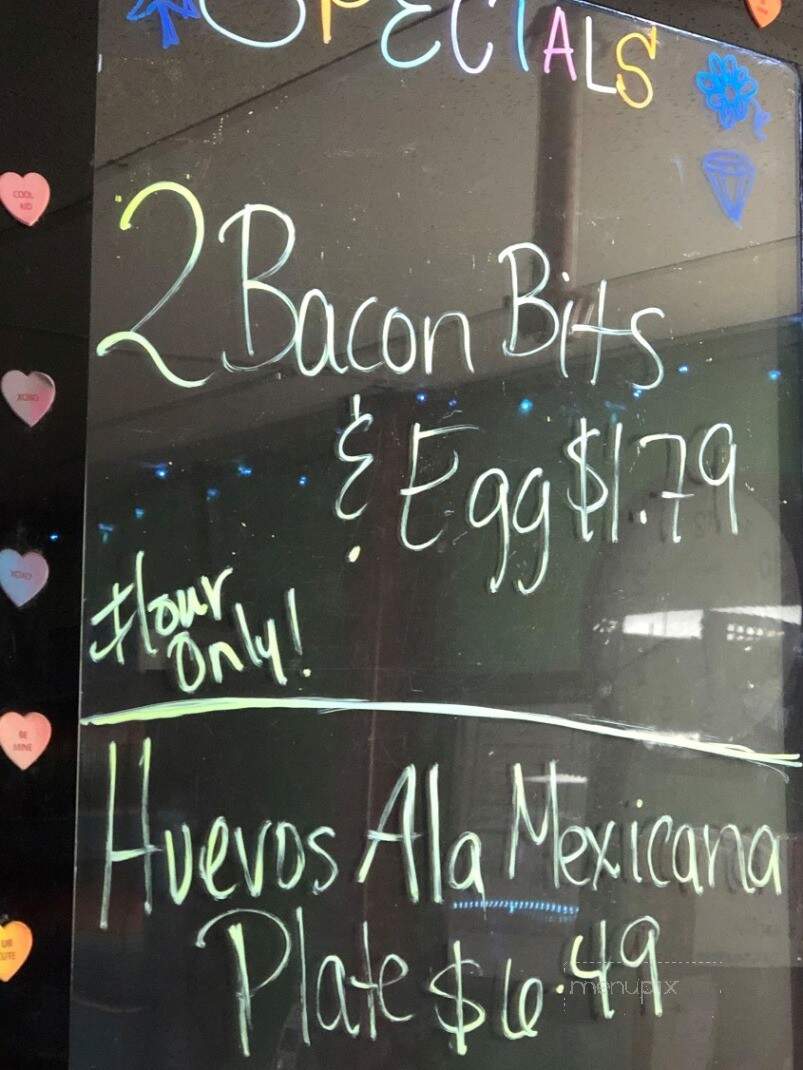 SPECIALS
2 Bacon Bits
& Egg $1.79
Flour
Only!
Huevos Ala Mexicana
Plate $6.49
menupix
COOL
KID
XOXO
XOXO
BE
MINE
UR
CUTE